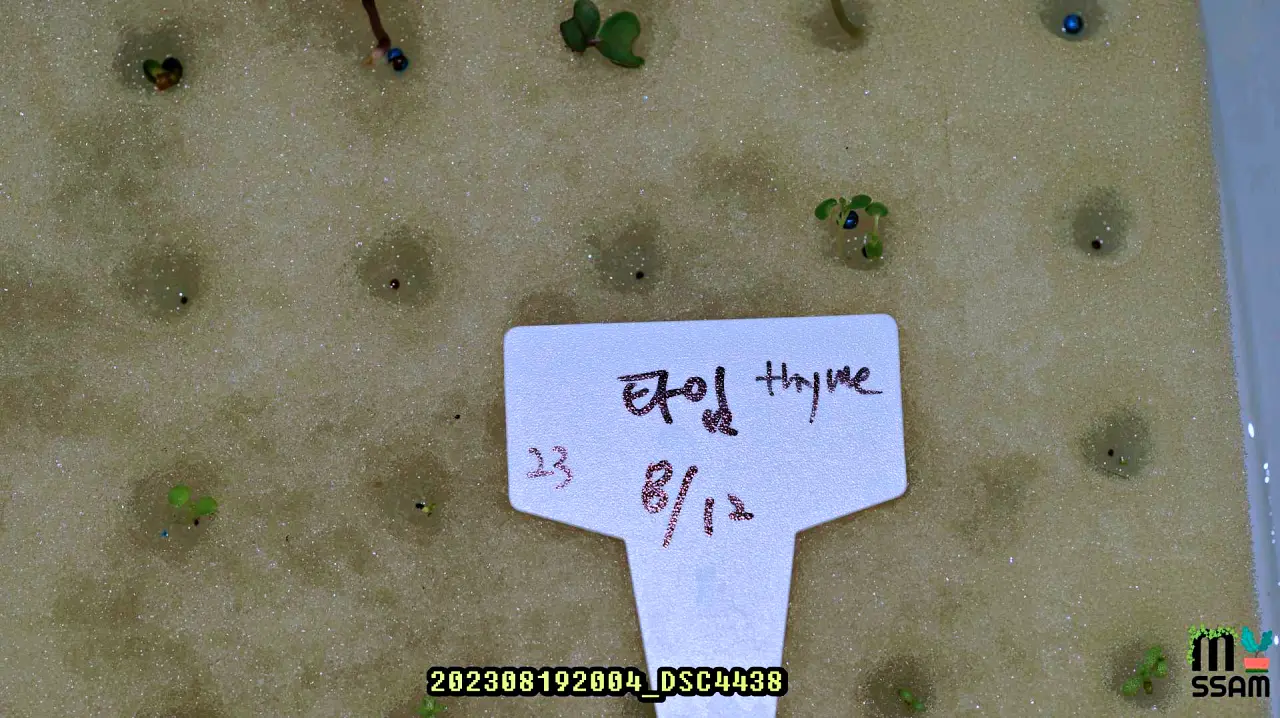 타임 thyme
23
8/12
202308192004_DSC4438
M
SSAM